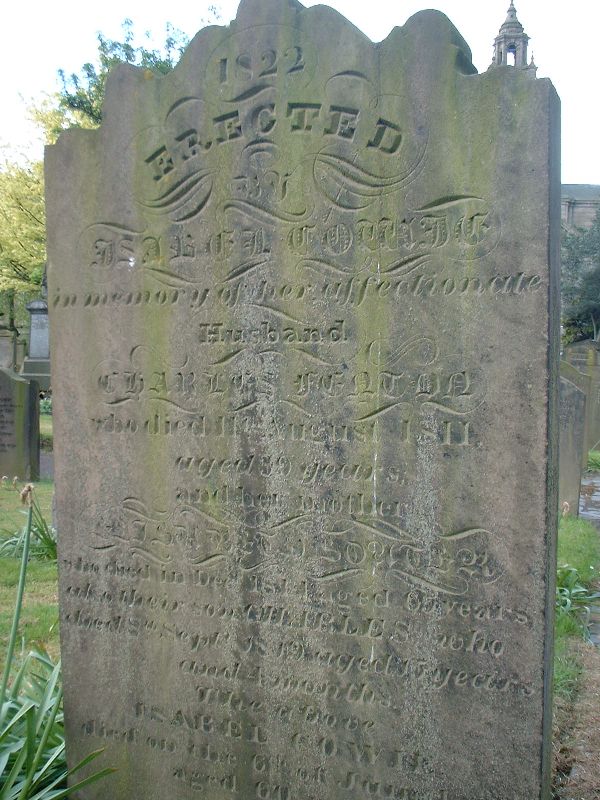 1822
ERECTED
BY
ISABEL COWIE
in memory of her affectionate
Husband
CHARLES FENTON
who died 11th August 1811,
aged 39 years,
and her mother
SOUTER
who died in Dec. aged years,
also their son CHARLES, who
died 8th Sept. 1819, aged 17 years
and 4 months.
The above
ISABEL COWIE
died on the 6th of
aged